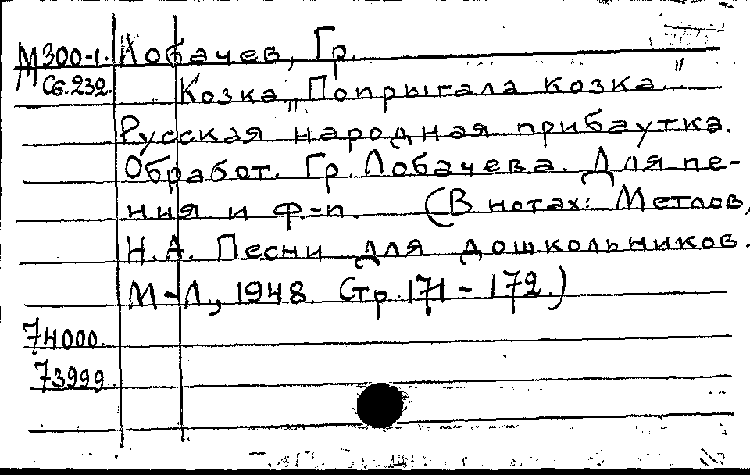 М300-1. Лобачев, Гр.
Сб.232. Козка „Попрыгала козка"
Русская народная прибаутка.
Обработ. Гр. Лобачева. Для пе-
ния и ф.-п. (В нотах: Метлов,
Н.А. Песни для дошкольников.
М-Л, 1948. Стр. 171-172.)
74000.
73999.